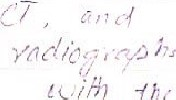 CT, and
radiographs
with the